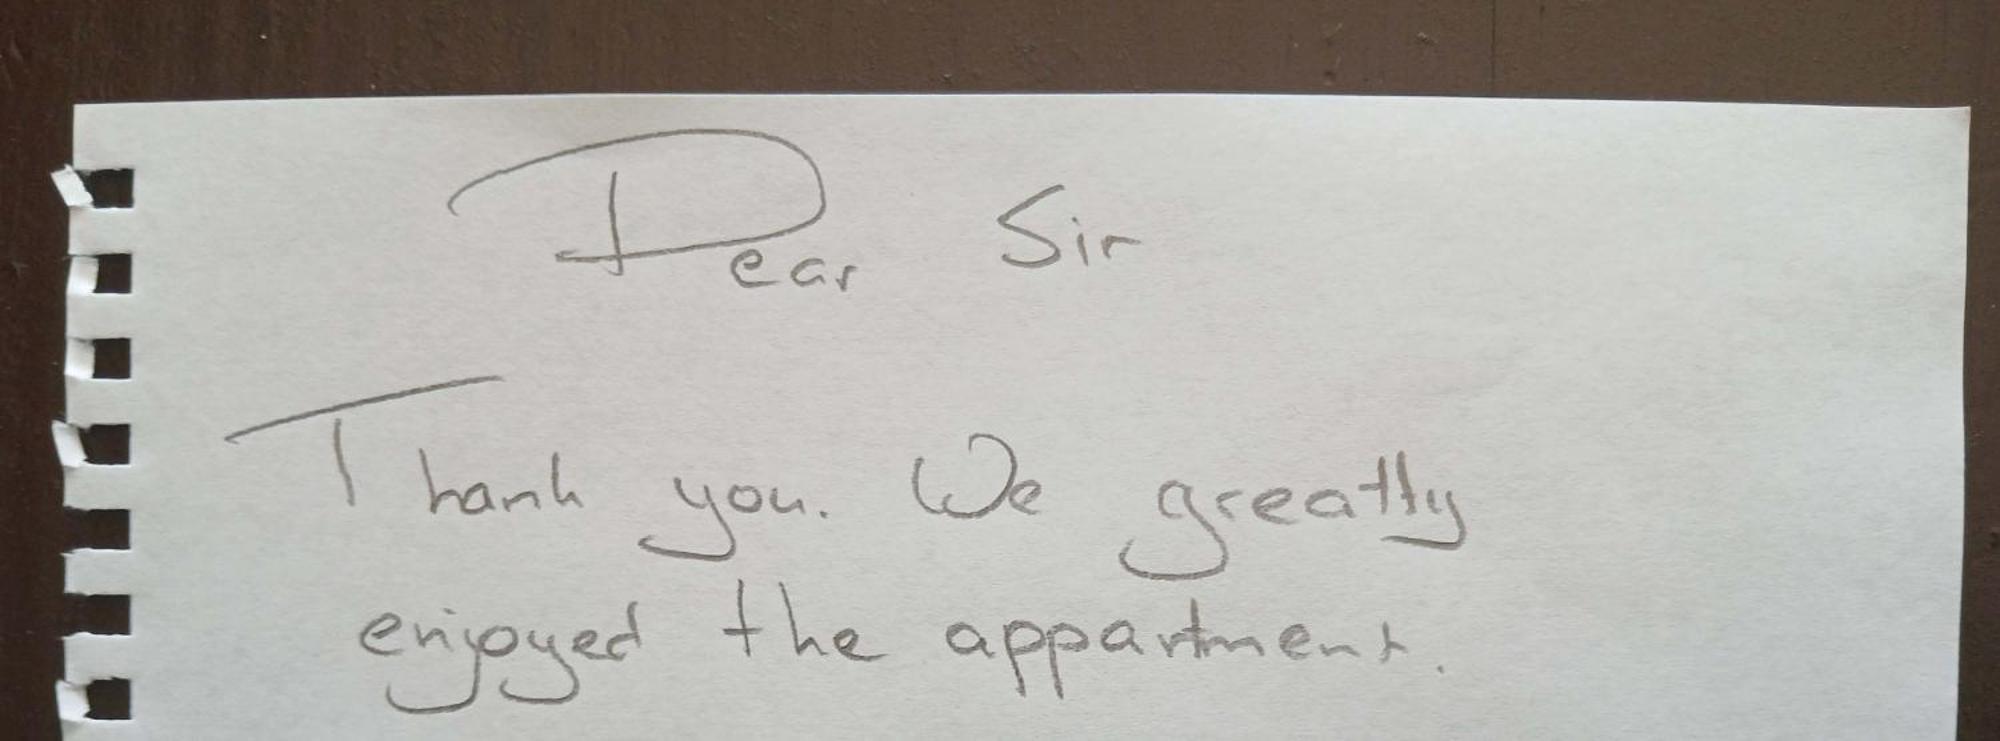 Dear Sir
Thank you. We greatly
enjoyed the appartment.